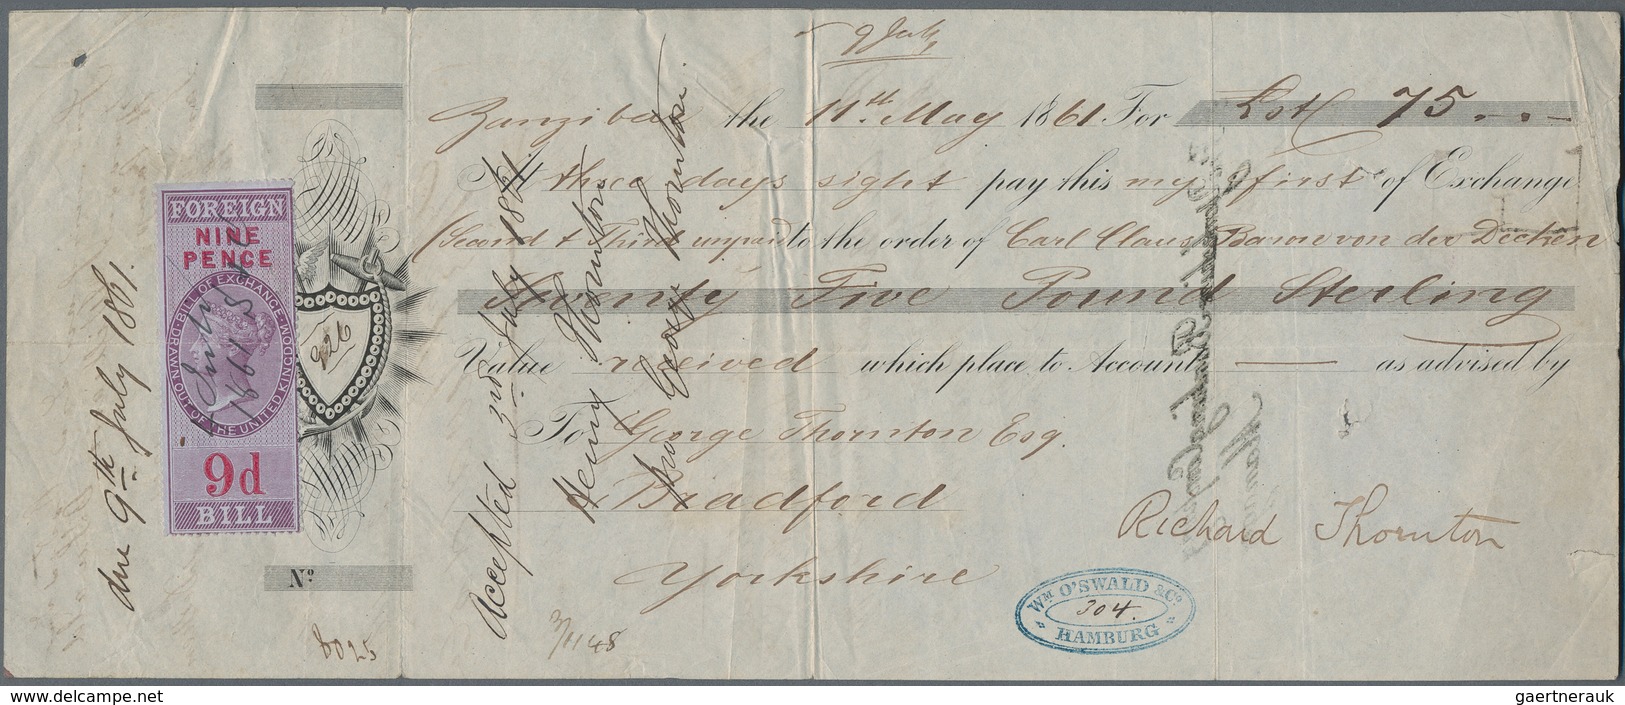 9 July
Zanzibar the 11th May 1861 For £St 75
At three days sight pay this my first of Exchange
(Second & Third unpaid to the order of Carl Claus Baron von der Decken
Seventy Five Pound Sterling
Value received which place to Account as advised by
To George Thornton Esq.
Bradford
Yorkshire
Richard Thornton
Accepted 3rd July 1861
Henry Thornton
pro George Thornton.
due 9th July 1861.
FOREIGN
NINE
PENCE
BILL OF EXCHANGE
DRAWN OUT OF THE UNITED KINGDOM
9d
BILL
Nº
8025
WM O'SWALD & Co.
304.
HAMBURG
www.delcampe.net
gaertnerauk